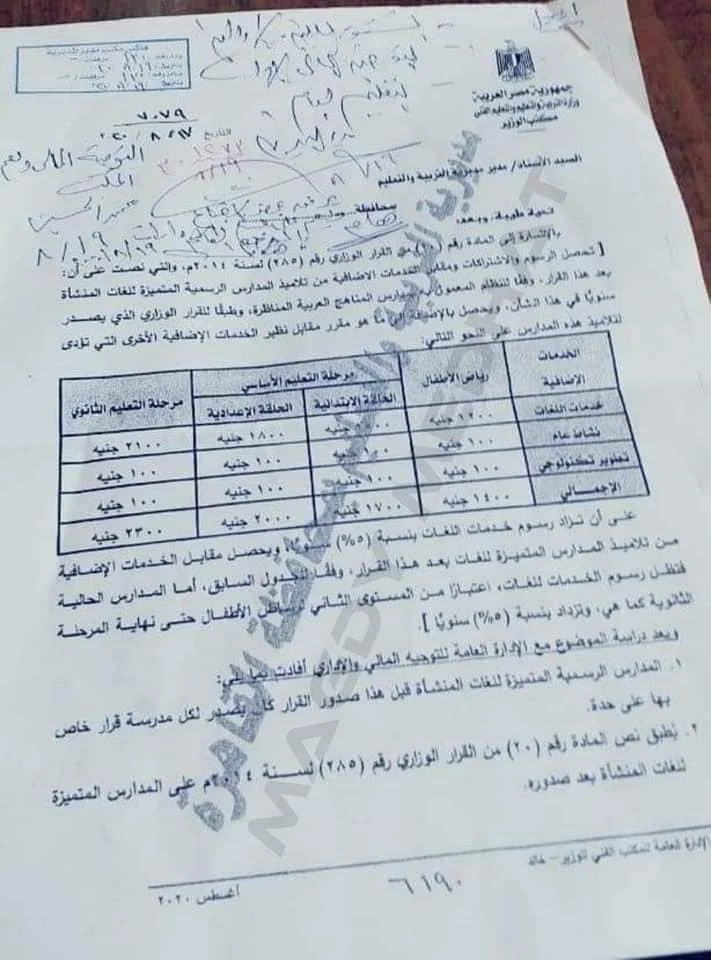 جمهورية مصر العربية
وزارة التربية والتعليم والتعليم الفني
مكتب الوزير
فاكس مكتب مدير المديرية
٧٠٧٩
التاريخ
السيد الأستاذ/ مدير مديرية التربية والتعليم
بمحافظة
تحية طيبة، وبعد،
بالإشارة إلى المادة رقم (٢٠) من القرار الوزاري رقم (٢٨٥) لسنة ٢٠١٤م، والتي نصت على أن:
[ تحصل الرسوم والاشتراكات ومقابل الخدمات الإضافية من تلاميذ المدارس الرسمية المتميزة للغات المنشأة
بعد هذا القرار، وفقًا للنظام المعمول به بمدارس المناهج العربية المناظرة، وطبقًا للقرار الوزاري الذي يصدر
سنويًا في هذا الشأن، ويحصل بالإضافة إلى ما هو مقرر مقابل نظير الخدمات الإضافية الأخرى التي تؤدى
لتلاميذ هذه المدارس على النحو التالي:
الخدمات الإضافية رياض الأطفال مرحلة التعليم الأساسي مرحلة التعليم الثانوي
الحلقة الابتدائية الحلقة الإعدادية
خدمات اللغات ١٢٠٠ جنيه جنيه ١٨٠٠ جنيه ٢١٠٠ جنيه
نشاط عام ١٠٠ جنيه جنيه ١٠٠ جنيه ١٠٠ جنيه
تطوير تكنولوجي ١٠٠ جنيه ١٠٠ جنيه ١٠٠ جنيه ١٠٠ جنيه
الإجمالي ١٤٠٠ جنيه ١٧٠٠ جنيه ٢٠٠٠ جنيه ٢٣٠٠ جنيه
على أن تزاد رسوم خدمات اللغات بنسبة (٥%) سنويًا، ويحصل مقابل الخدمات الإضافية
من تلاميذ المدارس المتميزة للغات بعد هذا القرار، وفقًا للجدول السابق، أما المدارس الحالية
فتظل رسوم الخدمات للغات، اعتبارًا من المستوى الثاني لرياض الأطفال حتى نهاية المرحلة
الثانوية كما هي، وتزداد بنسبة (٥%) سنويًا ].
وبعد دراسة الموضوع مع الإدارة العامة للتوجيه المالي والإداري أفادت بما يلي:
١. المدارس الرسمية المتميزة للغات المنشأة قبل هذا صدور القرار كان يصدر لكل مدرسة قرار خاص
بها على حدة.
٢. يُطبق نص المادة رقم (٢٠) من القرار الوزاري رقم (٢٨٥) لسنة ٢٠١٤م على المدارس المتميزة
للغات المنشأة بعد صدوره.
الإدارة العامة للمكتب الفني للوزير - خالد
٦١٩٠
أغسطس ٢٠٢٠
مديرية التربية والتعليم بمحافظة القاهرة
MAGDY MEDHAT